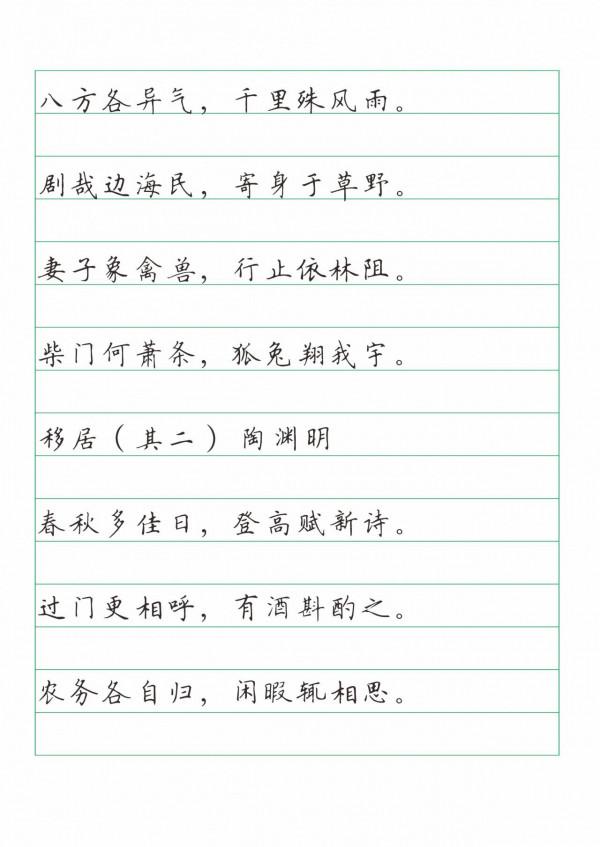 八方各异气，千里殊风雨。
剧哉边海民，寄身于草野。
妻子象禽兽，行止依林阻。
柴门何萧条，狐兔翔我宇。
移居（其二）陶渊明
春秋多佳日，登高赋新诗。
过门更相呼，有酒斟酌之。
农务各自归，闲暇辄相思。